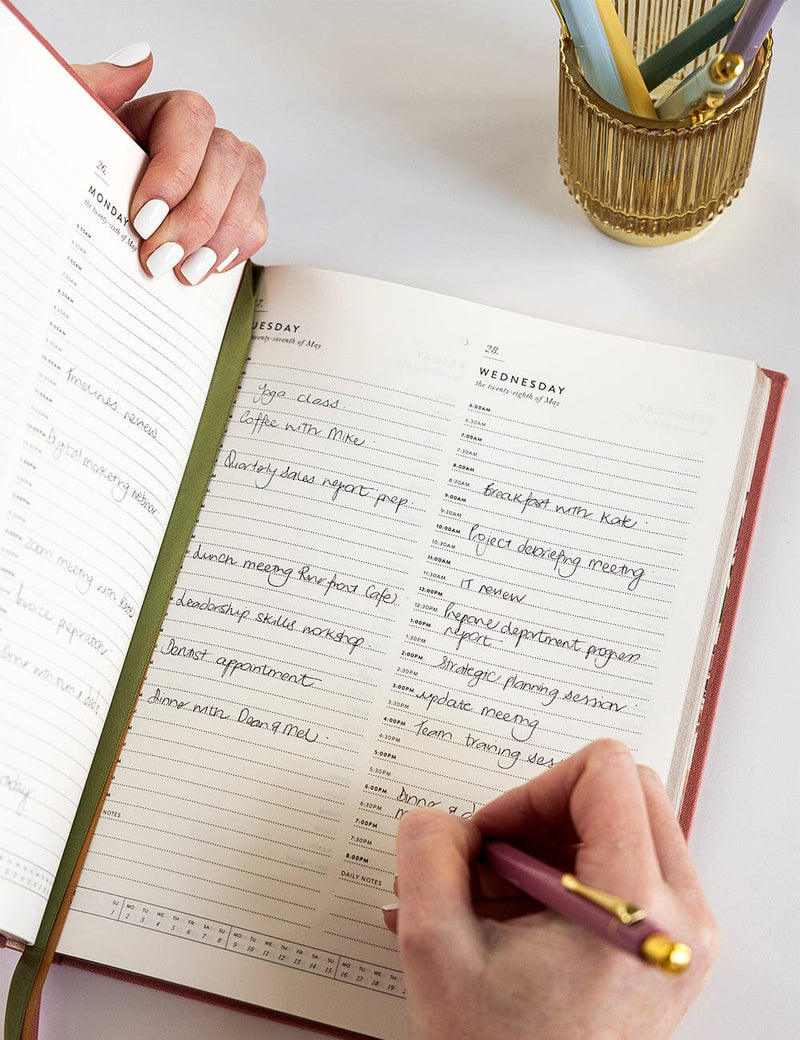 26.
MONDAY
the twenty-sixth of May
6:00AM
6:30AM
7:00AM
7:30AM
8:00AM
Timelines review
Digital marketing webinar
Zoom meeting with Kate
Invoice preparation
Dinner with mum & dad
7.
UESDAY
twenty-seventh of May
Yoga class.
Coffee with Mike
Quarterly sales report prep.
Lunch meeting Riverfront Cafe)
Leadership skills workshop.
Dentist appointment
Dinner with Dean & Mel.
NOTES
SU MO TU WE TH FR SA SU MO TU WE TH FR SA SU MO TU WE TH
1 2 3 4 5 6 7 8 9 10 11 12 13 14 15 16 17 18 19
28.
WEDNESDAY
the twenty-eighth of May
6:00AM
6:30AM
7:00AM
7:30AM
8:00AM
8:30AM Breakfast with Kate.
9:00AM
9:30AM
10:00AM Project debriefing meeting
10:30AM
11:00AM
11:30AM IT review
12:00PM
12:30PM Prepare department progress
1:00PM report.
1:30PM
2:00PM Strategic planning session.
2:30PM
3:00PM update meeting
3:30PM
4:00PM Team training ses
4:30PM
5:00PM
5:30PM
6:00PM Dinner & d
6:30PM m
7:00PM
7:30PM
8:00PM
DAILY NOTES